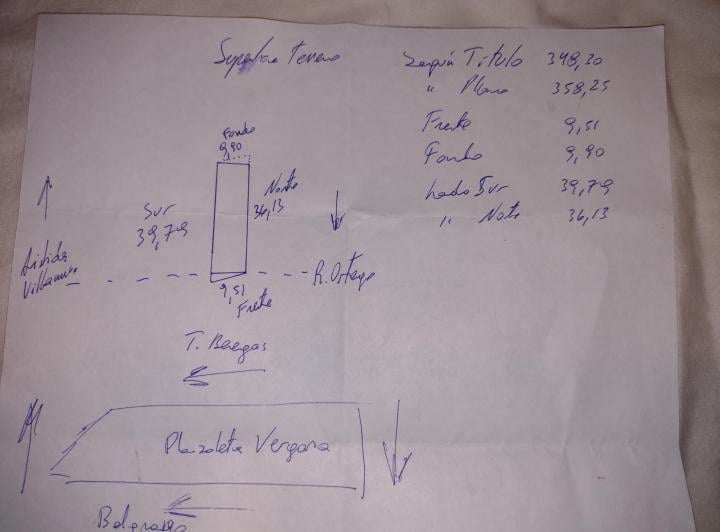 Superficie Terreno
Según Titulo 348,30
" Plano 358,25
Frente 9,51
Fondo 9,90
Lado Sur 39,79
" Norte 36,13
Fondo
9,90
Norte
36,13
Sur
39,79
Aristides
Villanueva
R. Ortega
9,51
Frente
T. Benegas
Plazoleta Vergara
Belgrano